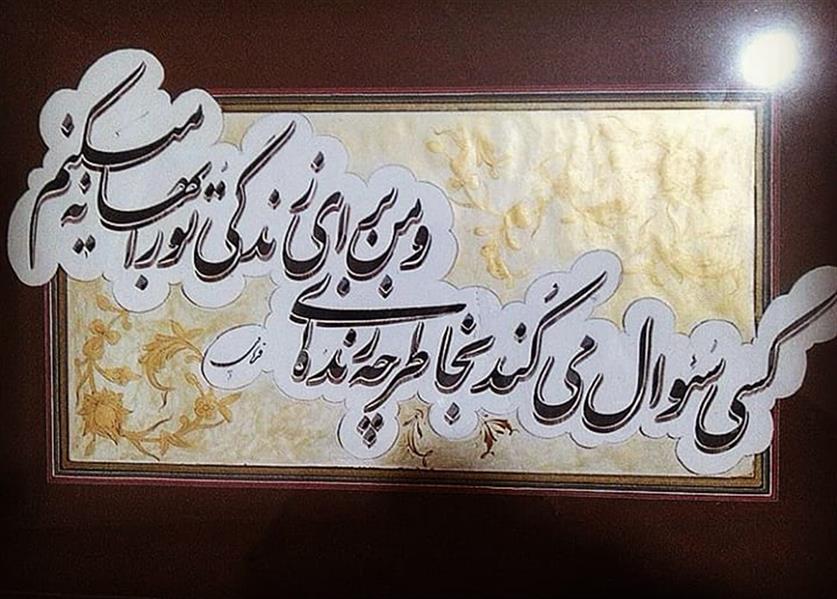 کسی سئوال می کند بخاطر چه زنده ای
و من برای زندگی تو را بهانه میکنم